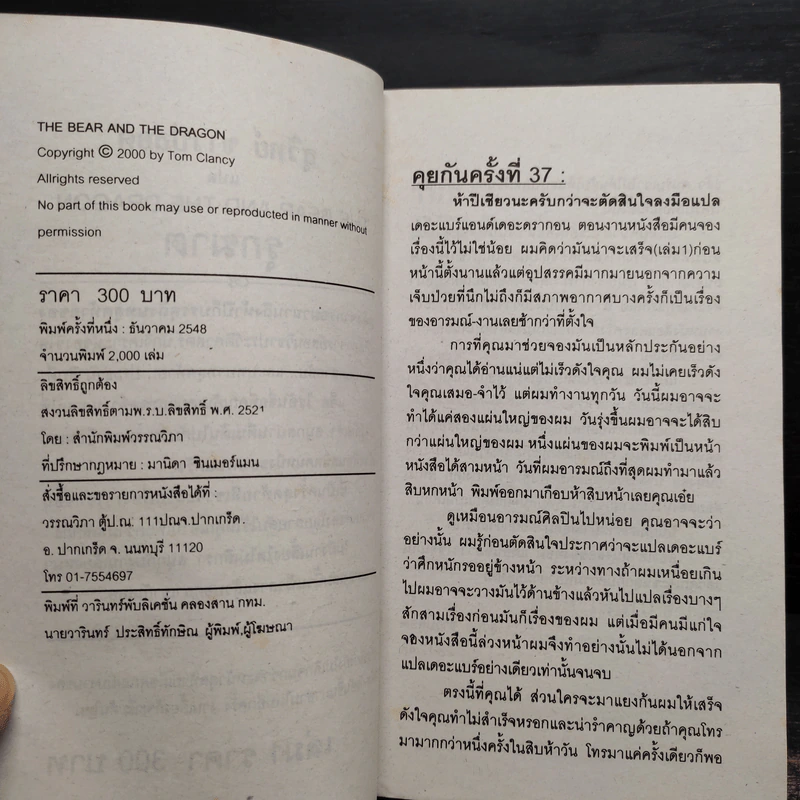 THE BEAR AND THE DRAGON
Copyright © 2000 by Tom Clancy
Allrights reserved
No part of this book may use or reproduced in manner without
permission
ราคา 300 บาท
พิมพ์ครั้งที่หนึ่ง : ธันวาคม 2548
จำนวนพิมพ์ 2,000 เล่ม
ลิขสิทธิ์ถูกต้อง
สงวนลิขสิทธิ์ตามพ.ร.บ.ลิขสิทธิ์ พ.ศ. 2521
โดย : สำนักพิมพ์วรรณวิภา
ที่ปรึกษากฎหมาย : มานิดา ซินเมอร์แมน
สั่งซื้อและขอรายการหนังสือได้ที่ :
วรรณวิภา ตู้ป.ณ. 111ปณจ.ปากเกร็ด.
อ. ปากเกร็ด จ. นนทบุรี 11120
โทร 01-7554697
พิมพ์ที่ วารินทร์พับลิเคชั่น คลองสาน กทม.
นายวารินทร์ ประสิทธิ์ทักษิณ ผู้พิมพ์,ผู้โฆษณา
คุยกันครั้งที่ 37 :
ห้าปีเชียวนะครับกว่าจะตัดสินใจลงมือแปล
เดอะแบร์แอนด์เดอะดรากอน ตอนงานหนังสือมีคนจอง
เรื่องนี้ไว้ไม่ใช่น้อย ผมคิดว่ามันน่าจะเสร็จ(เล่ม1)ก่อน
หน้านี้ตั้งนานแล้วแต่อุปสรรคมีมากมายนอกจากความ
เจ็บป่วยที่นึกไม่ถึงก็มีสภาพอากาศบางครั้งก็เป็นเรื่อง
ของอารมณ์-งานเลยช้ากว่าที่ตั้งใจ
การที่คุณมาช่วยจองมันเป็นหลักประกันอย่าง
หนึ่งว่าคุณได้อ่านแน่แต่ไม่เร็วดังใจคุณ ผมไม่เคยเร็วดัง
ใจคุณเสมอ-จำไว้ แต่ผมทำงานทุกวัน วันนี้ผมอาจจะ
ทำได้แค่สองแผ่นใหญ่ของผม วันรุ่งขึ้นผมอาจจะได้สิบ
กว่าแผ่นใหญ่ของผม หนึ่งแผ่นของผมจะพิมพ์เป็นหน้า
หนังสือได้สามหน้า วันที่ผมอารมณ์ถึงที่สุดผมทำมาแล้ว
สิบหกหน้า พิมพ์ออกมาเกือบห้าสิบหน้าเลยคุณเอ๋ย
ดูเหมือนอารมณ์ศิลปินไปหน่อย คุณอาจจะว่า
อย่างนั้น ผมรู้ก่อนตัดสินใจประกาศว่าจะแปลเดอะแบร์
ว่าศึกหนักรออยู่ข้างหน้า ระหว่างทางถ้าผมเหนื่อยเกิน
ไปผมอาจจะวางมันไว้ด้านข้างแล้วหันไปแปลเรื่องบางๆ
สักสามเรื่องก่อนมันก็เรื่องของผม แต่เมื่อมีคนมีแก่ใจ
จองหนังสือนี้ล่วงหน้าผมจึงทำอย่างนั้นไม่ได้นอกจาก
แปลเดอะแบร์อย่างเดียวเท่านั้นจนจบ
ตรงนี้ที่คุณได้ ส่วนใครจะมาแยงกันผมให้เสร็จ
ดังใจคุณทำไม่สำเร็จหรอกและน่ารำคาญด้วยถ้าคุณโทร
มามากกว่าหนึ่งครั้งในสิบห้าวัน โทรมาแค่ครั้งเดียวก็พอ